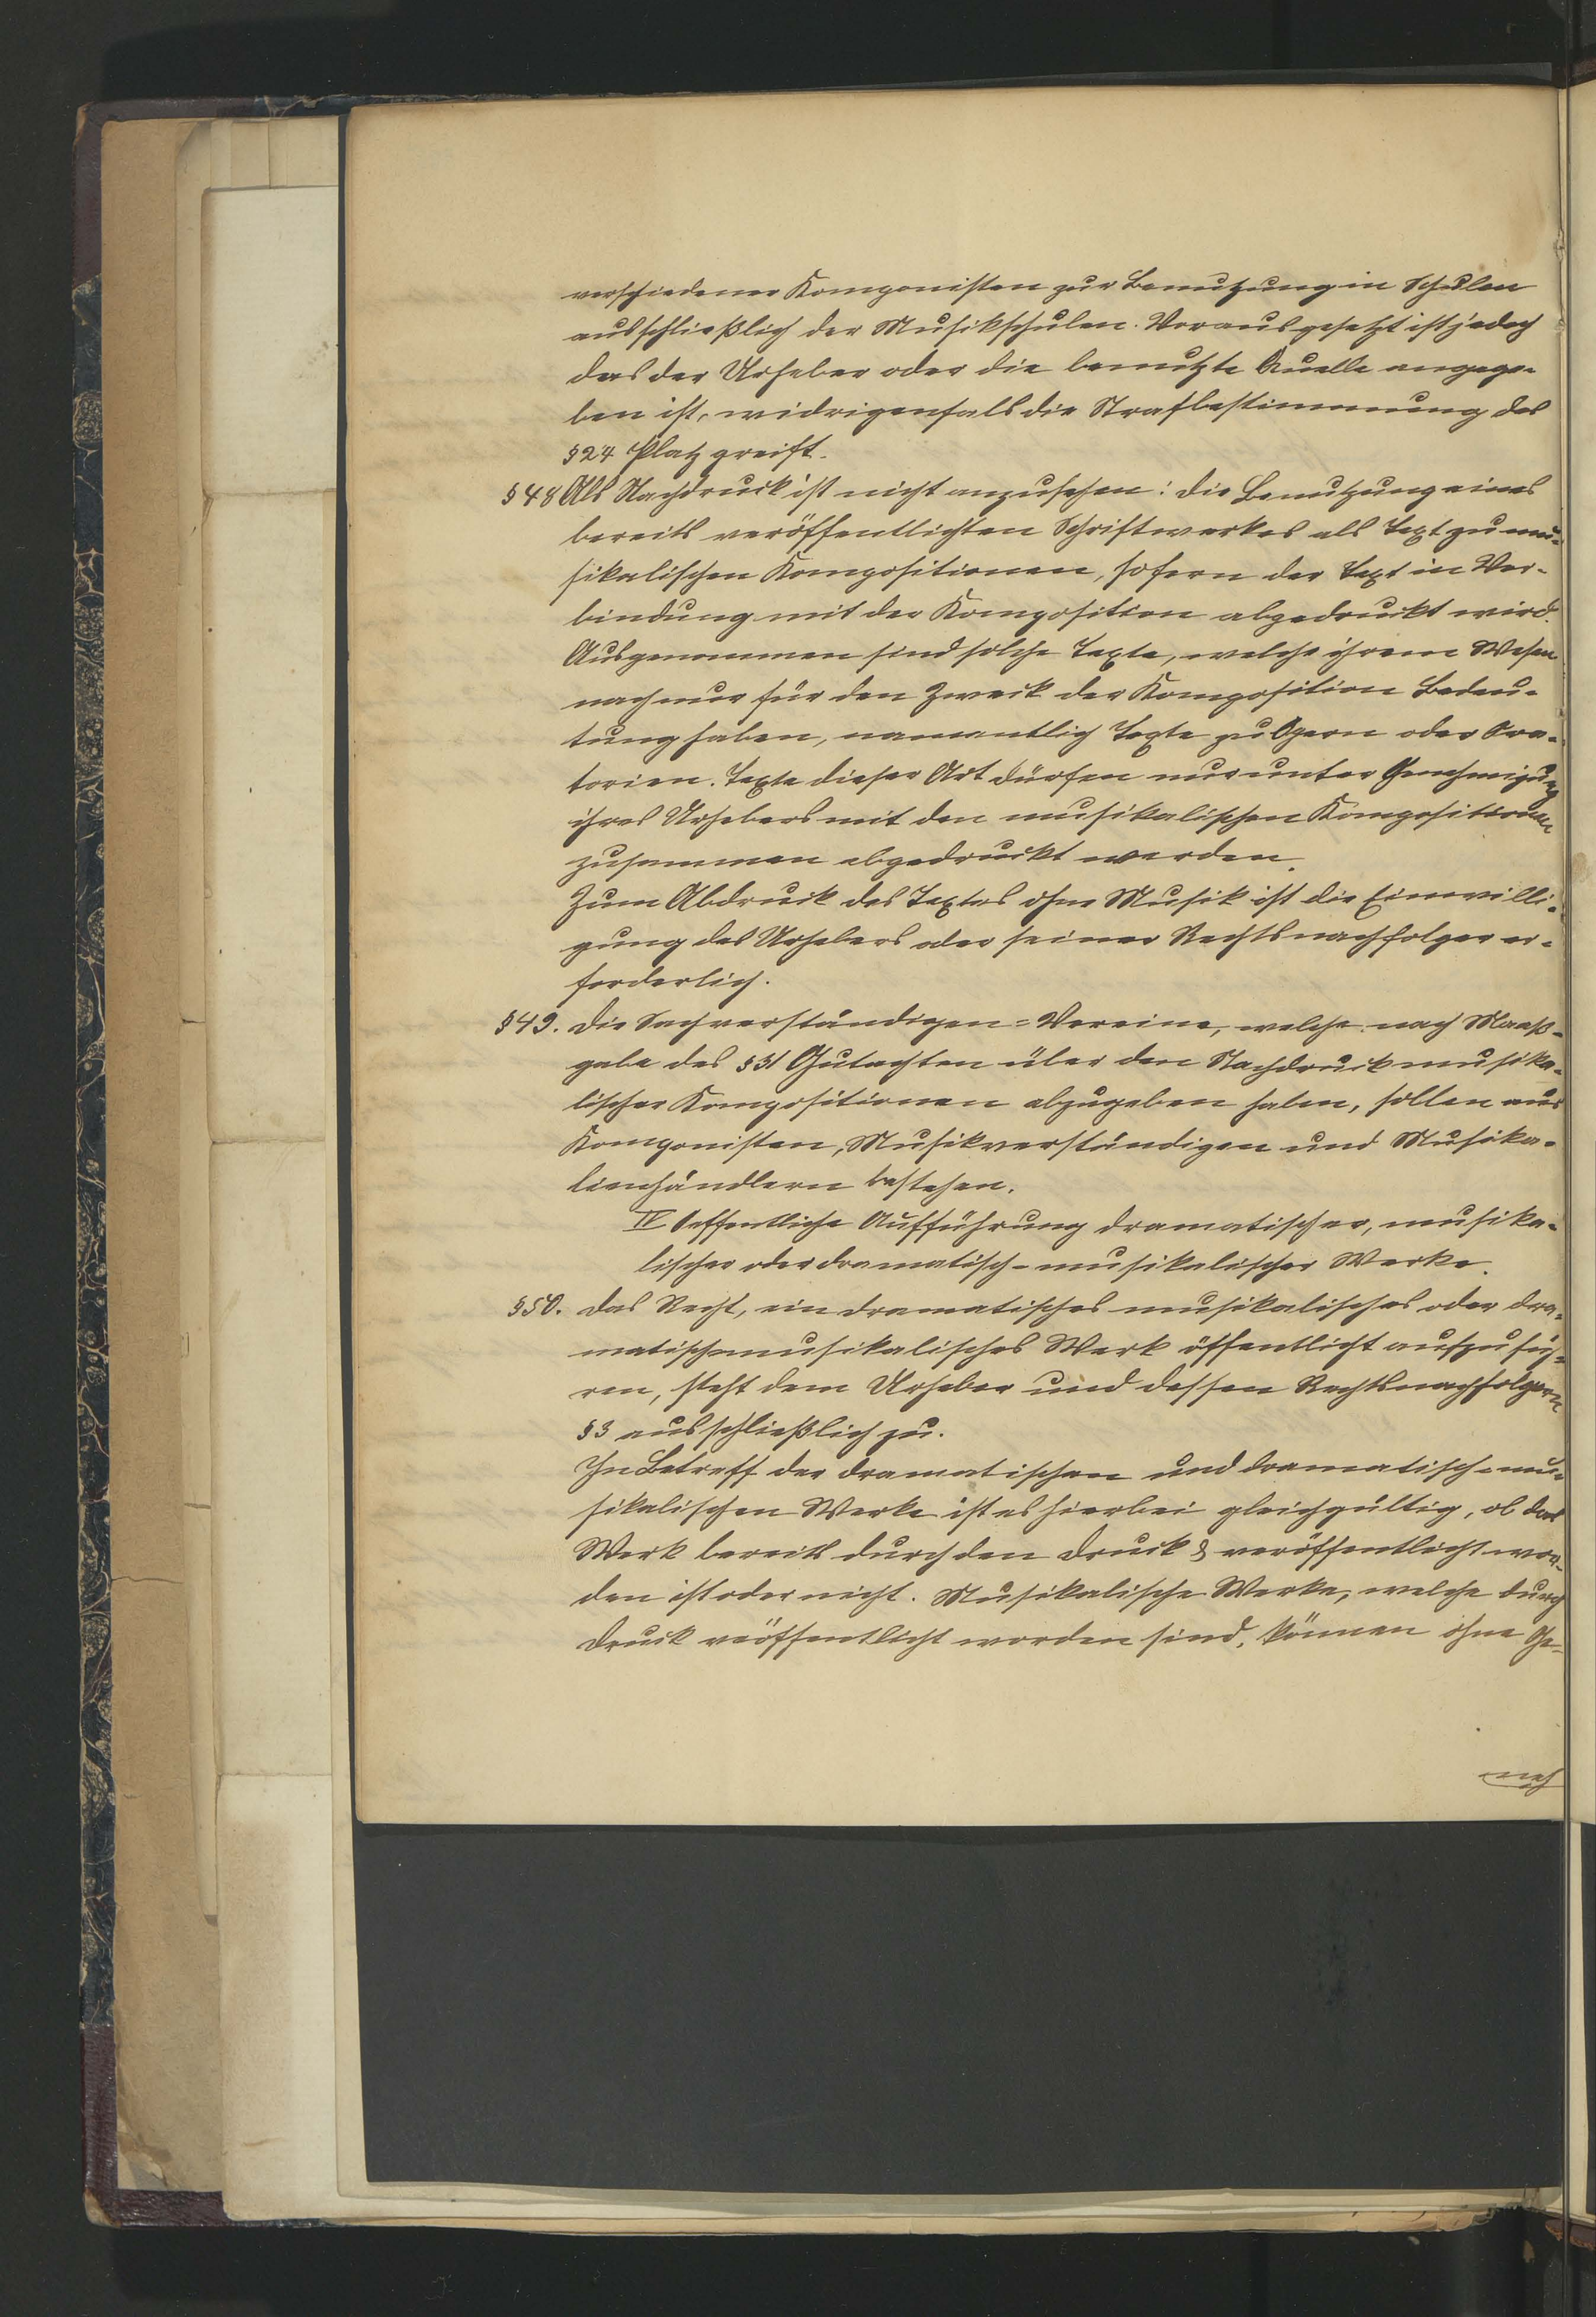 verschiedener Komponisten zur Benutzung in Schulen
ausschließlich der Musikschulen. Vorausgesetzt ist jedoch
das der Urheber oder die benutzte Quelle angege-
ben ist, widrigenfalls die Strafbestimmung des
§24 Platz greift.
§48 Als Nachdruck ist nicht anzusehen: die Benutzung eines
bereits veröffentlichten Schriftwerkes als Text zu mu-
sikalischen Kompositionen, sofern der Text in Ver-
bindung mit der Komposition abgedruckt wird.
Ausgenommen sind solche Texte, welche ihrem Wesen
nach nur für den Zweck der Komposition Bedeu-
tung haben, namentlich Texte zu Opern oder Ora-
torien. Texte dieser Art dürfen nur unter Genehmigung
ihres Urhebers mit den musikalischen Kompositionen
zusammen abgedruckt werden.
Zum Abdruck des Textes ohne Musik ist die Einwilli-
gung des Urhebers oder seiner Rechtsnachfolger er-
forderlich.
§49. Die Sachverständigen=Vereine, welche nach Maaß-
gabe des §31 Gutachten über den Nachdruck musika-
lischer Kompositionen abzugeben haben, sollen aus
Komponisten, Musikverständigen und Musika-
lienhändlern bestehen.
IV Oeffentliche Aufführung dramatischer, musika-
lischer oder dramatisch-musikalischer Werke.
§50. Das Recht, ein dramatisches musikalisches oder dra-
matischmusikalisches Werk öffentlicht aufzufüh-
ren, steht dem Urheber und dessen Rechtsnachfolgern
§3 ausschließlich zu.
In Betreff der dramatischen und dramatisch-mu-
sikalischen Werke ist es hierbei gleichgültig, ob das
Werk bereits durch den Druck & veröffentlicht wor-
den ist oder nicht. Musikalische Werke, welche durch
Druck veöffentlicht worden sind, können ohne Ge-
neh